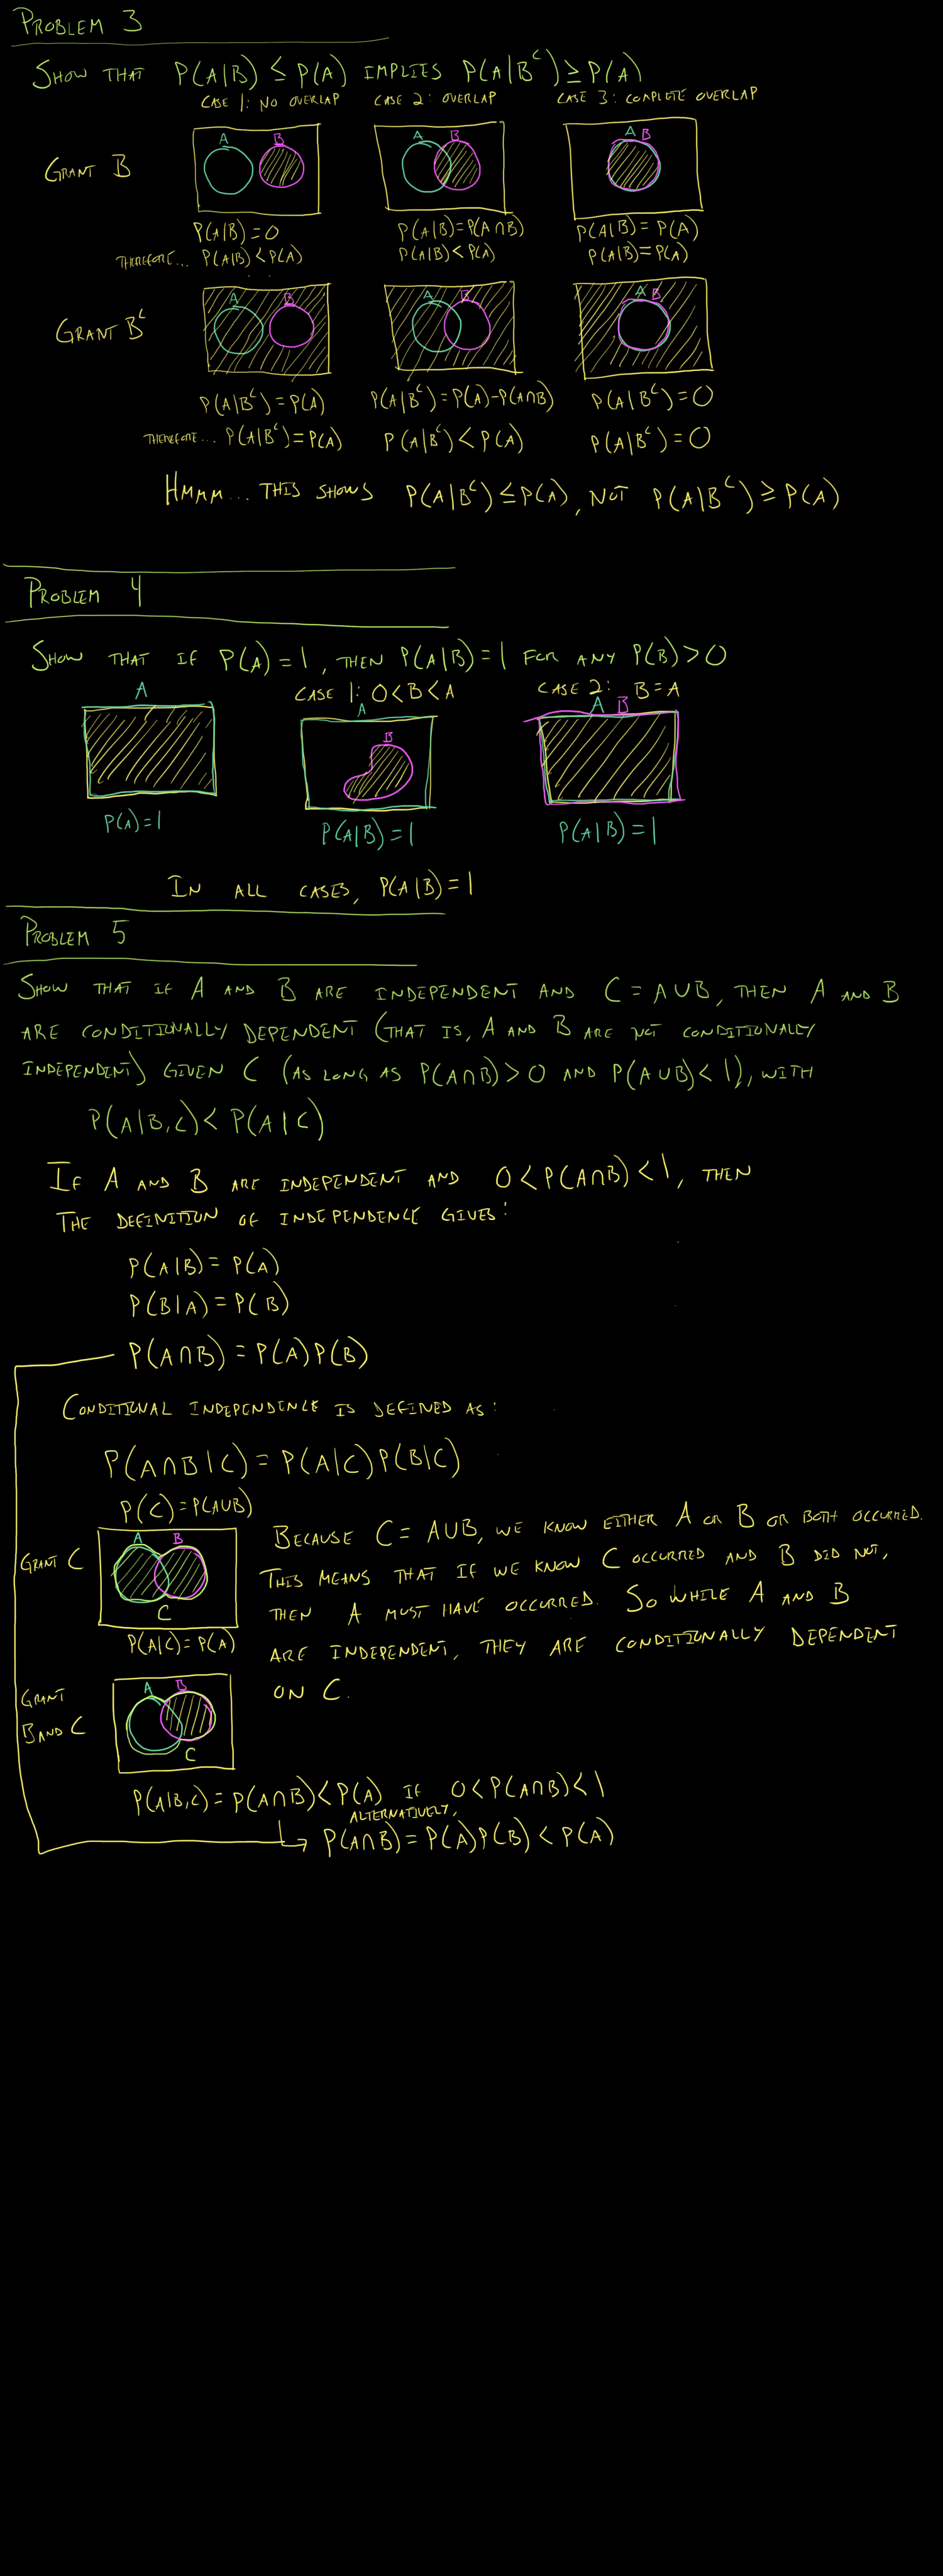 PROBLEM 3
SHOW THAT P(A|B) ≤ P(A) IMPLIES P(A|Bᶜ) ≥ P(A)
CASE 1: NO OVERLAP CASE 2: OVERLAP CASE 3: COMPLETE OVERLAP
GRANT B
A B A B A B
P(A|B)=0 P(A|B)=P(A∩B) P(A|B)=P(A)
THEREFORE... P(A|B)<P(A) P(A|B)<P(A) P(A|B)=P(A)
GRANT Bᶜ
A B A B A B
P(A|Bᶜ)=P(A) P(A|Bᶜ)=P(A)-P(A∩B) P(A|Bᶜ)=0
THEREFORE... P(A|Bᶜ)=P(A) P(A|Bᶜ)<P(A) P(A|Bᶜ)=0
HMMM... THIS SHOWS P(A|Bᶜ)≤P(A), NOT P(A|Bᶜ)≥P(A)
PROBLEM 4
SHOW THAT IF P(A)=1, THEN P(A|B)=1 FOR ANY P(B)>0
A CASE 1: 0<B<A CASE 2: B=A
A B A B
P(A)=1 P(A|B)=1 P(A|B)=1
IN ALL CASES, P(A|B)=1
PROBLEM 5
SHOW THAT IF A AND B ARE INDEPENDENT AND C=A∪B, THEN A AND B
ARE CONDITIONALLY DEPENDENT (THAT IS, A AND B ARE NOT CONDITIONALLY
INDEPENDENT) GIVEN C (AS LONG AS P(A∩B)>0 AND P(A∪B)<1), WITH
P(A|B,C)<P(A|C)
IF A AND B ARE INDEPENDENT AND 0<P(A∩B)<1, THEN
THE DEFINITION OF INDEPENDENCE GIVES:
P(A|B)=P(A)
P(B|A)=P(B)
P(A∩B)=P(A)P(B)
CONDITIONAL INDEPENDENCE IS DEFINED AS:
P(A∩B|C)=P(A|C)P(B|C)
P(C)=P(A∪B)
GRANT C
A B
C
P(A|C)=P(A)
BECAUSE C=A∪B, WE KNOW EITHER A OR B OR BOTH OCCURRED.
THIS MEANS THAT IF WE KNOW C OCCURRED AND B DID NOT,
THEN A MUST HAVE OCCURRED. SO WHILE A AND B
ARE INDEPENDENT, THEY ARE CONDITIONALLY DEPENDENT
ON C.
GRANT
B AND C
A B
C
P(A|B,C)=P(A∩B)<P(A) IF 0<P(A∩B)<1
ALTERNATIVELY,
P(A∩B)=P(A)P(B)<P(A)